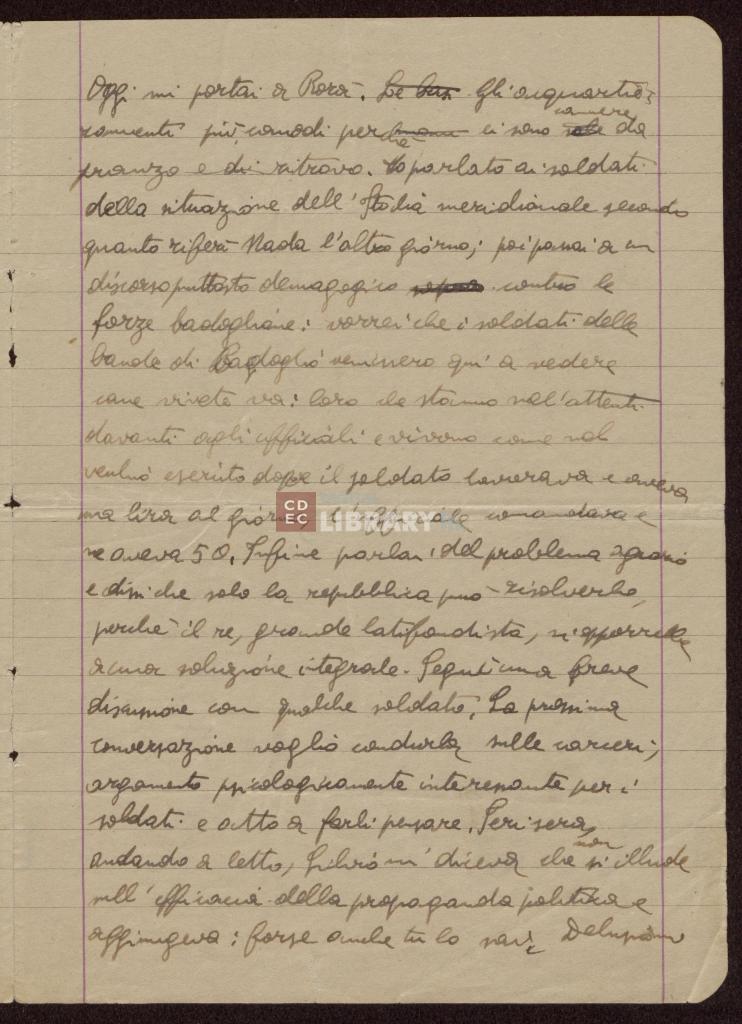 Oggi mi portai a Rorà. Le bas Gli acquartie-
ramenti più comodi perchè ci sono camere da
pranzo e di ritrovo. Ho parlato ai soldati
della situazione dell'Italia meridionale secondo
quanto riferì Nada l'altro giorno; poi passai a un
discorso piuttosto demagogico contro le
forze badogliane: vorrei che i soldati delle
bande di Badoglio venissero qui a vedere
come vivete voi: loro che stanno sull'attenti
davanti agli ufficiali e vivono come nel
vecchio esercito dove il soldato lavorava e aveva
una lira al giorno, l'ufficiale comandava e
ne aveva 50. Infine parlai del problema agrario
e dissi che solo la repubblica può risolverlo,
perchè il re, grande latifondista, si opporrebbe
a una soluzione integrale. Seguì una breve
discussione con qualche soldato. La prossima
conversazione voglio condurla sulle carceri;
argomento psicologicamente interessante per i
soldati e atto a farli pensare. Ieri sera,
andando a letto, Silvio m'diceva che non si illude
sull'efficacia della propaganda politica e
aggiungeva: forse anche tu lo sai. Delusione
CDEC LIBRARY